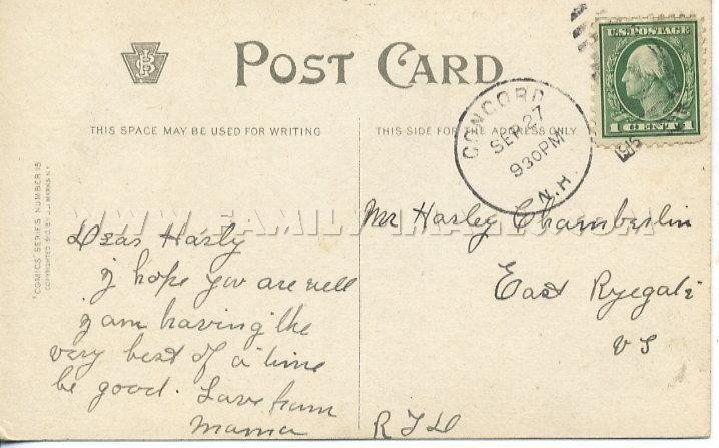 POST CARD
U.S. POSTAGE
1 CENT 1
CONCORD
SEP 27
930PM
N.H.
1915
THIS SPACE MAY BE USED FOR WRITING
THIS SIDE FOR THE ADDRESS ONLY
"COMICS" SERIES NUMBER 15
COPYRIGHTED 1910 BY J. J. MARKS N.Y.
WWW.FAMILY-IMAGES.COM
Dear Harly
I hope you are well
I am having the
very best of a time
be good. Love from
Mama
Mr Harley Chamberlin
East Ryegate
Vt
R F D